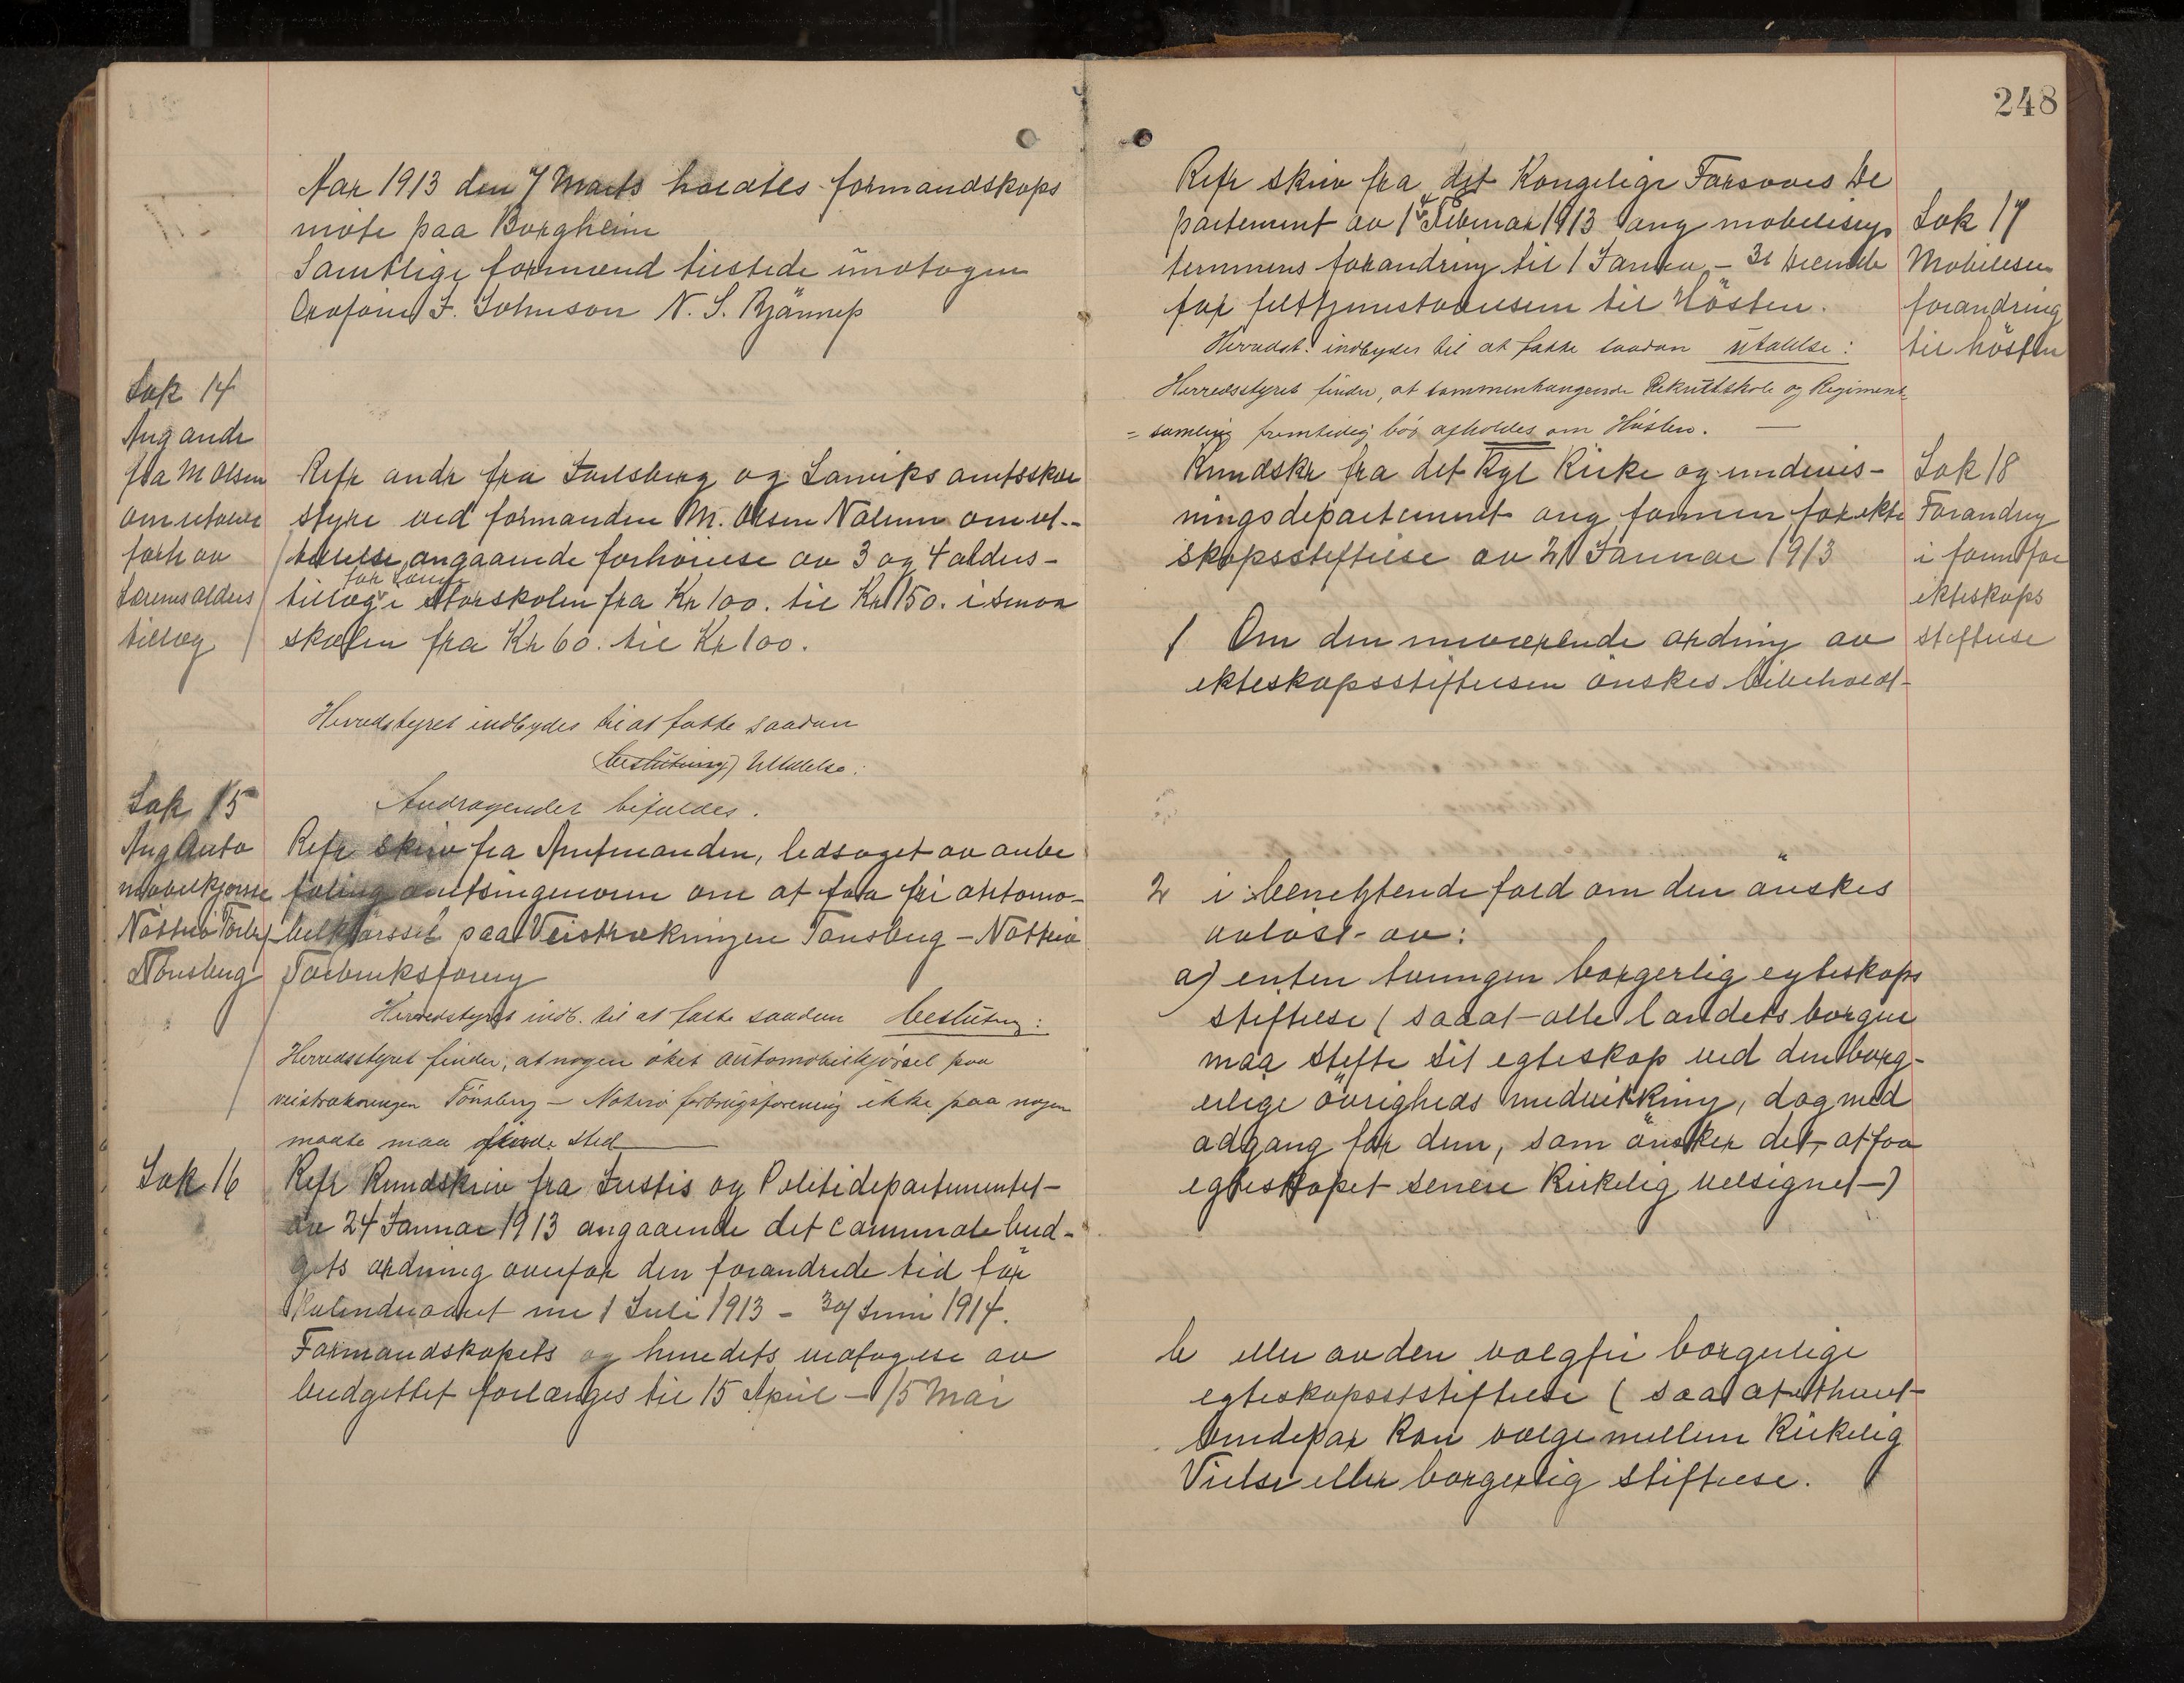 Aar 1913 den 7 Marts holdtes formandskaps
møte paa Borgheim
Samtlige formænd tilstede undtagen
F. Johnson N. S.
Sak 14
Ang andr
fra M Olsen
om utalelse
forh av
Lærernes alders
tillæg
Refr andr fra Jarlsberg og Larviks amtsskole
styre ved formanden M. Olsen Nalum om ut-
talelse angaaende forhøielse av 3 og 4 alders-
for Lærere
tillæg i storskolen fra Kr 100. til Kr 150. i smaa
skolen fra Kr 60. til Kr 100.
Herredstyret indbydes til at fatte saadan
beslutning) Uttalelse:
Andragendet bifaldes.
Sak 15
Ang Auto
mobilkjørsel
Nøtterø Torbr
Tønsberg
Refr skriv fra Amtmanden, ledsaget av anbe
faling amtsingeniøren om at faa fri automo-
bilkjørssel paa Veistrækningen Tønsberg - Nøtterø
Forbruksforeng
Herredstyret indb. til at fatte saadan beslutng:
Herredsstyret finder, at nogen øket automobilkjørsel paa
veistrækningen Tönsberg - Nøterø forbrugsforening ikke paa nogen
maate maa finde sted
Sak 16
Refr Rundskriv fra Justis og Politidepartementet
av 24 Januar 1913 angaaende det communale bud-
gets ordning overfor den forandrede tid for
Kalenderaaret nu 1 Juli 1913 - 30 Juni 1914.
Formandskapets og herredets vedtagelse av
budgettet forlænges til 15 April - 15 Mai
248
Refr skriv fra det Kongelige Forsvars De
partement av 14 Februar 1913 ang mobiliserngs
terminens forandring til 1 Januar - 31 December
for felttjenestøvelsene til Hösten.
Herredst. indbydes til at fatte saadan utalelse:
Herredsstyret finder, at sammenhængende Rekrutskole og Regiment-
= samling fremtidig bör afholdes om Hösten.
Sak 17
Mobiliser
forandring
til høsten
Rundskr fra det Kgl Kirke og undervis-
ningsdepartement ang formen for ekte
skapsstiftelse av 21 Januar 1913
Sak 18
Forandrng
i form for
ekteskaps
stiftelse
1 Om den nuværende ordning av
ekteskapsstiftelsen ønskes bibeholdt
2 i benegtende fald om den ønskes
avløst av:
a) enten tvungen borgerlig egteskaps
stiftelse (saa at alle landets borgere
maa stifte sit egteskap ved den borg-
erlige övrigheds medvirkning, dog med
adgang for dem, som ønsker det, at faa
egteskapet senere kirkelig velsignet)
b eller av den valgfri borgerlige
egteskapsstiftelse (saa at ethvert
brudepar kan vælge mellem kirkelig
Vielse eller borgerlig stiftelse.